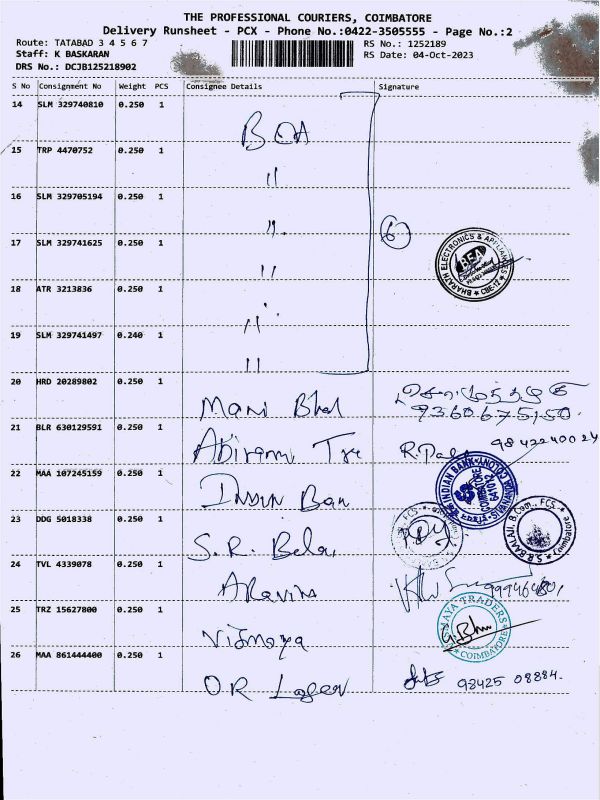 THE PROFESSIONAL COURIERS, COIMBATORE
Delivery Runsheet - PCX - Phone No.:0422-3505555 - Page No.:2
Route: TATABAD 3 4 5 6 7
RS No.: 1252189
Staff: K BASKARAN
RS Date: 04-Oct-2023
DRS No.: DCJB125218902
S No Consignment No Weight PCS Consignee Details Signature
14 SLM 329740810 0.250 1
15 TRP 4470752 0.250 1
〃
16 SLM 329705194 0.250 1
〃
6
17 SLM 329741625 0.250 1
BHARATH ELECTRONICS & APPLIANCES
BEA
CBE-12
〃
18 ATR 3213836 0.250 1
〃
19 SLM 329741497 0.240 1
〃
20 HRD 20289802 0.250 1
Mani
9360675150
21 BLR 630129591 0.250 1
Abirami
9842240024
22 MAA 107245159 0.250 1
INDIAN BANK
SIVANANDA COLONY
COIMBATORE
641012
23 DDG 5018338 0.250 1
S.R. Balaj
S.R BAALAJI, B.Com., FCS
Coimbatore
24 TVL 4339078 0.250 1
Aravin
25 TRZ 15627800 0.250 1
Vismaya
VISMAYA TRADERS
COIMBATORE
26 MAA 861444400 0.250 1
98425 08884.